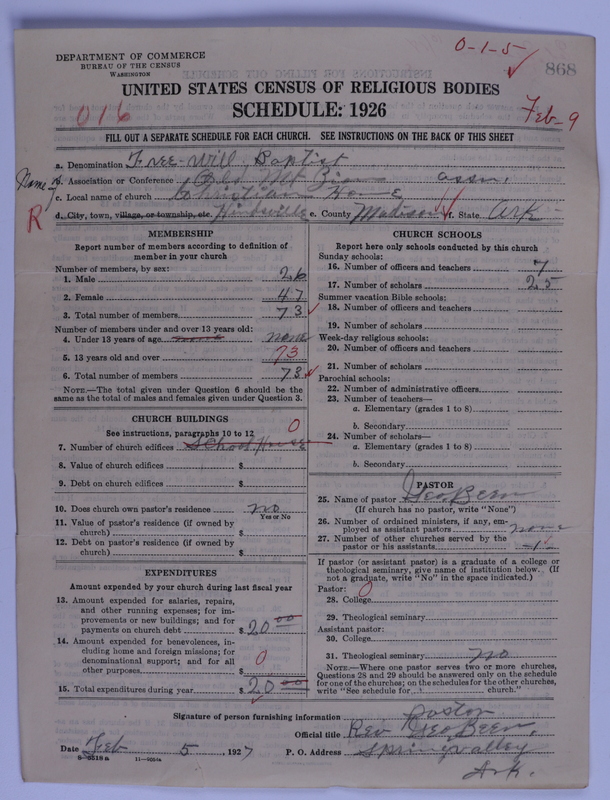 0-1-5
868
DEPARTMENT OF COMMERCE
BUREAU OF THE CENSUS
WASHINGTON
UNITED STATES CENSUS OF RELIGIOUS BODIES
SCHEDULE: 1926
016
Feb-9
FILL OUT A SEPARATE SCHEDULE FOR EACH CHURCH. SEE INSTRUCTIONS ON THE BACK OF THIS SHEET
a. Denomination Free-Will Baptist
b. Association or Conference Old Mt Zion assn.
Name of
c. Local name of church Christian Home
R
d. City, town, village, or township, etc. Hindsville e. County Madison f. State Ark
MEMBERSHIP
Report number of members according to definition of member in your church
Number of members, by sex:
1. Male 26
2. Female 47
3. Total number of members 73
Number of members under and over 13 years old:
4. Under 13 years of age none
5. 13 years old and over 73
6. Total number of members 73
NOTE.—The total given under Question 6 should be the
same as the total of males and females given under Question 3.
CHURCH BUILDINGS
See instructions, paragraphs 10 to 12
0
7. Number of church edifices School House
8. Value of church edifices $
9. Debt on church edifices $
10. Does church own pastor's residence no
Yes or No
11. Value of pastor's residence (if owned by
church) $
12. Debt on pastor's residence (if owned by
church) $
EXPENDITURES
Amount expended by your church during last fiscal year
13. Amount expended for salaries, repairs,
and other running expenses; for im-
provements or new buildings; and for
payments on church debt $20 00
14. Amount expended for benevolences, in-
cluding home and foreign missions; for
denominational support; and for all
other purposes $ 0
15. Total expenditures during year $20 00
CHURCH SCHOOLS
Report here only schools conducted by this church
Sunday schools:
16. Number of officers and teachers 7
17. Number of scholars 25
Summer vacation Bible schools:
18. Number of officers and teachers
19. Number of scholars
Week-day religious schools:
20. Number of officers and teachers
21. Number of scholars
Parochial schools:
22. Number of administrative officers
23. Number of teachers—
a. Elementary (grades 1 to 8)
b. Secondary
24. Number of scholars—
a. Elementary (grades 1 to 8)
b. Secondary
PASTOR
25. Name of pastor Geo. Been
(If church has no pastor, write "None")
26. Number of ordained ministers, if any, em-
ployed as assistant pastors none
27. Number of other churches served by the
pastor or his assistants -1-
If pastor (or assistant pastor) is a graduate of a college or
theological seminary, give name of institution below. (If
not a graduate, write "No" in the space indicated.)
Pastor: 0
28. College
29. Theological seminary
Assistant pastor:
30. College
31. Theological seminary no
NOTE.—Where one pastor serves two or more churches,
Questions 28 and 29 should be answered only on the schedule
for one of the churches; on the schedules for the other churches,
write "See schedule for church."
Signature of person furnishing information Pastor
Official title Rev Geo Been,
Date Feb 5, 1927 P. O. Address Springvalley
Ark.
8-5518 a 11-9054a